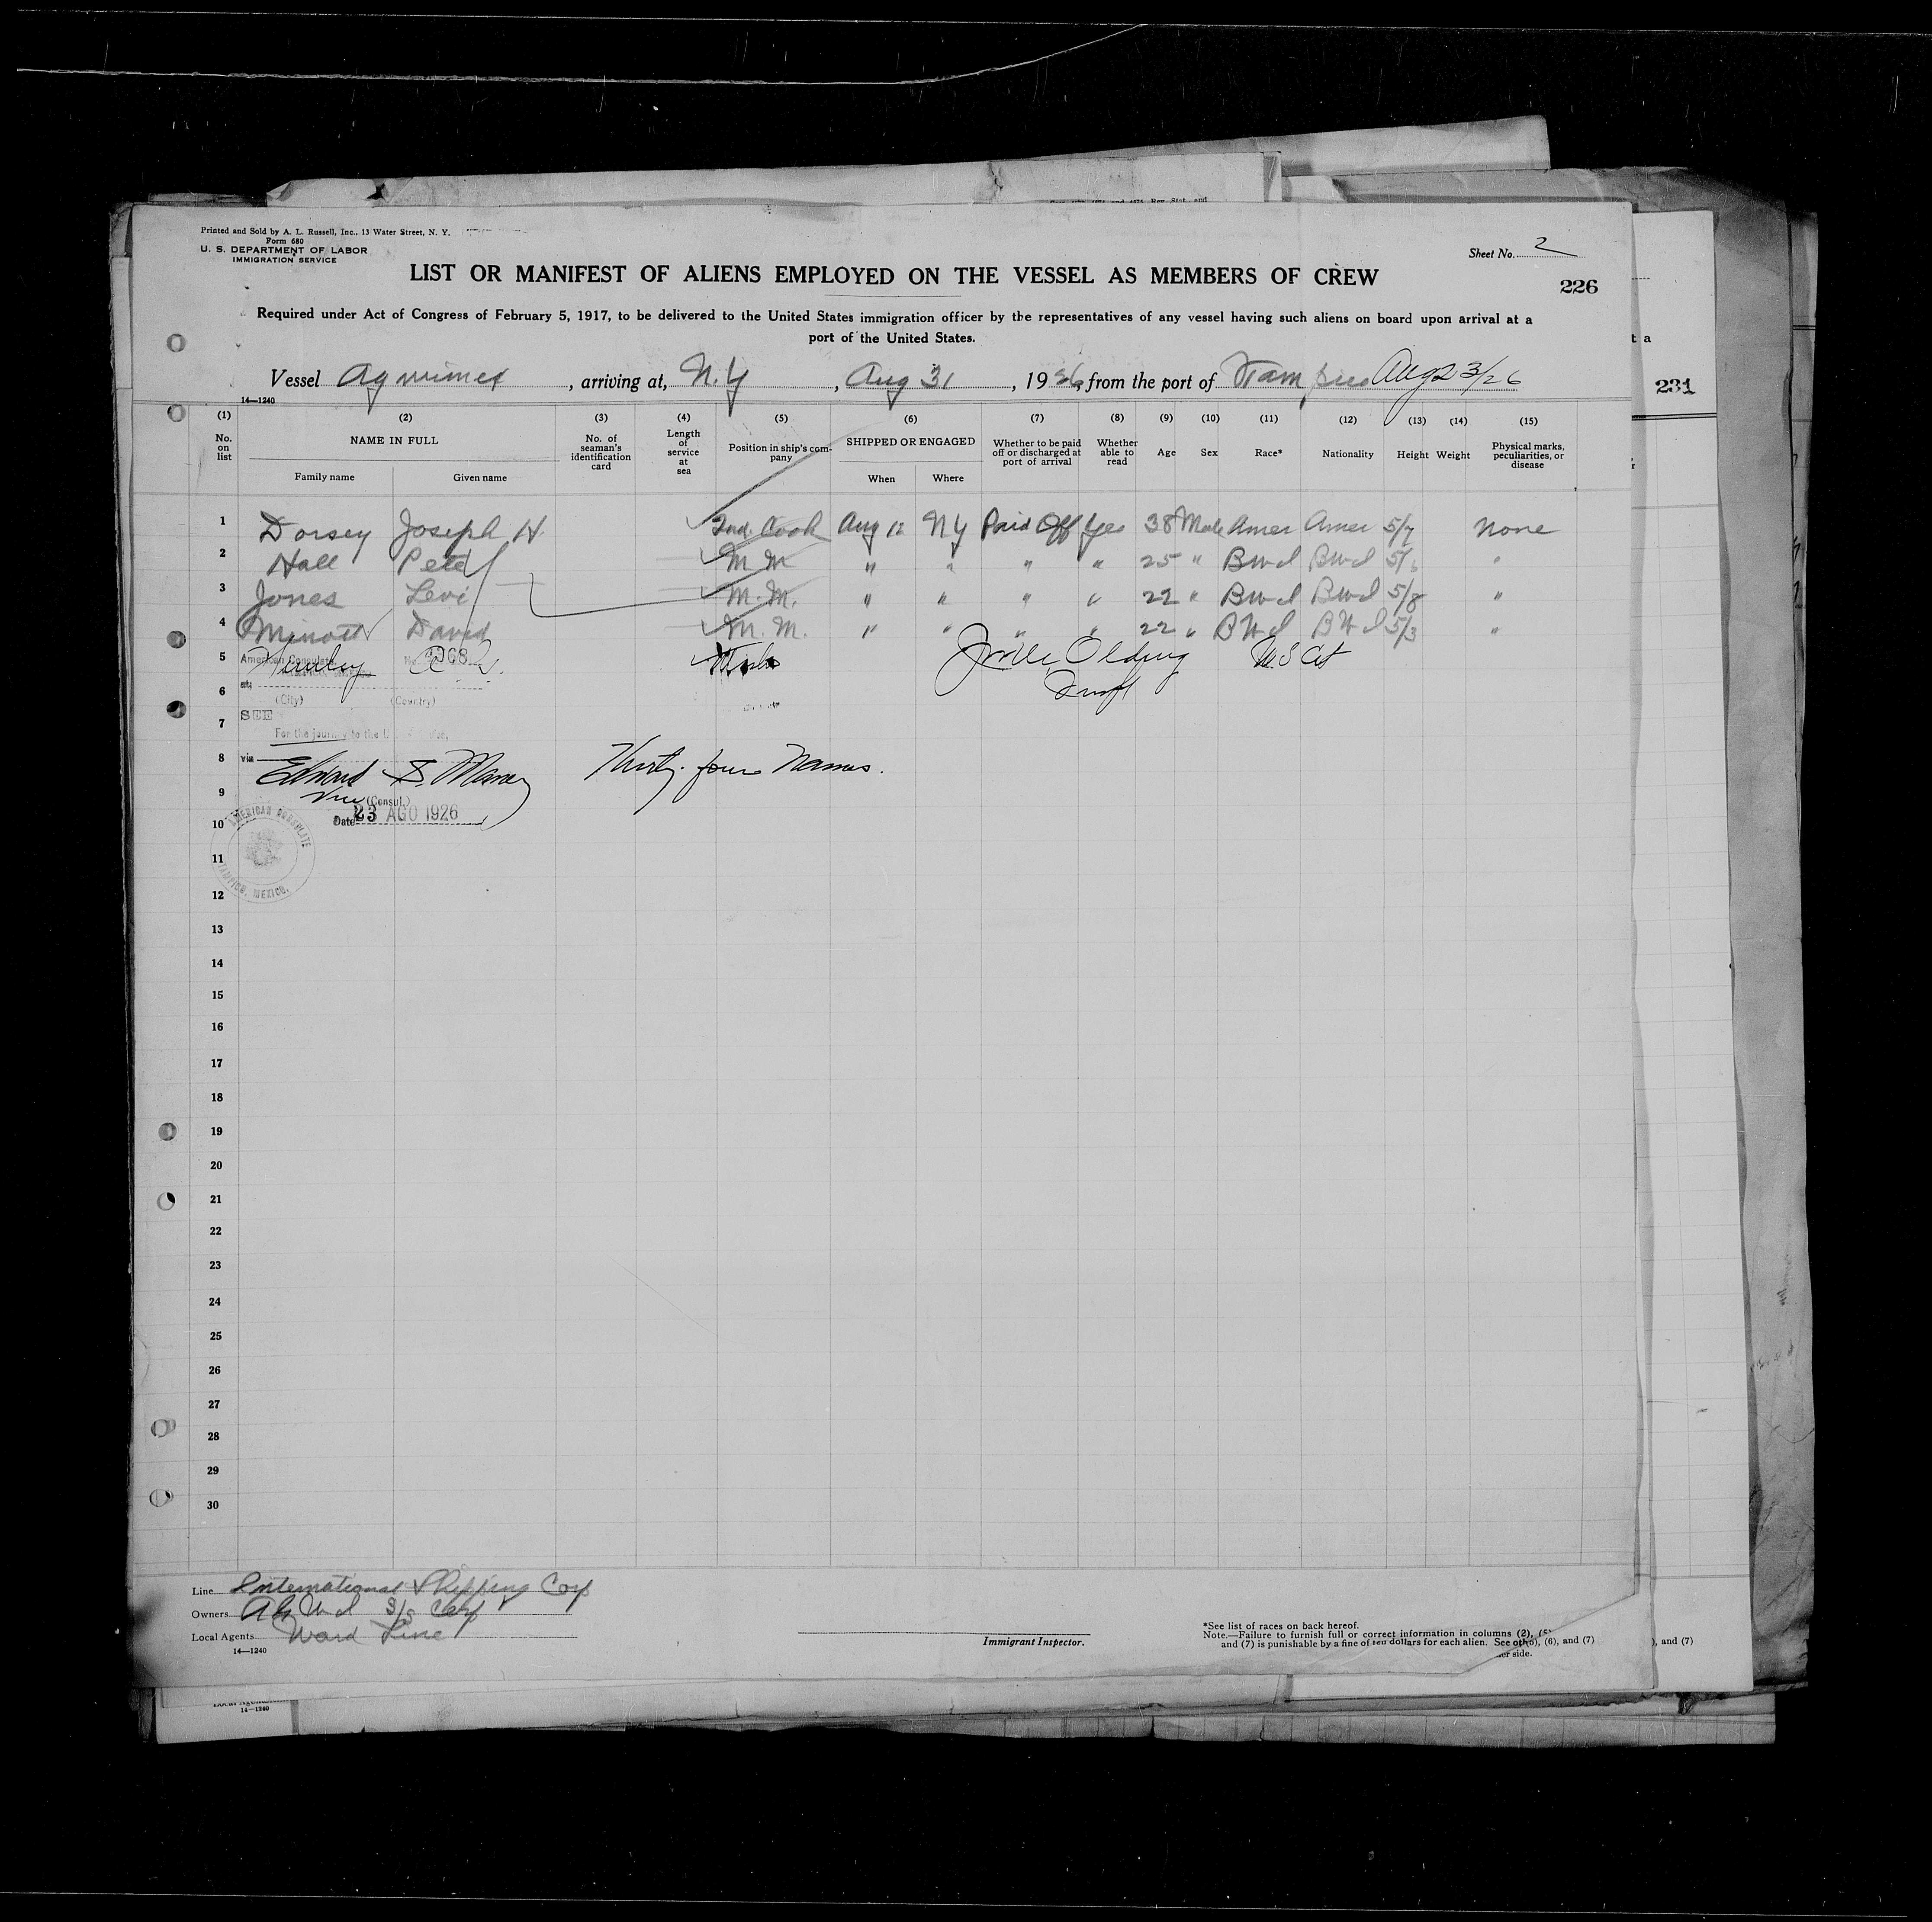 Printed and Sold by A. L. Russell, Inc., 13 Water Street, N. Y.
Form 680
U. S. DEPARTMENT OF LABOR
IMMIGRATION SERVICE
Sheet No. 2
LIST OR MANIFEST OF ALIENS EMPLOYED ON THE VESSEL AS MEMBERS OF CREW
226
Required under Act of Congress of February 5, 1917, to be delivered to the United States immigration officer by the representatives of any vessel having such aliens on board upon arrival at a
port of the United States.
t a
Vessel Agwimex, arriving at, N.Y, Aug 31, 1926, from the port of Tampico Aug 23/26
231
14—1240
(1) (2) (3) (4) (5) (6) (7) (8) (9) (10) (11) (12) (13) (14) (15)
No. on list NAME IN FULL No. of seaman's identification card Length of service at sea Position in ship's company SHIPPED OR ENGAGED Whether to be paid off or discharged at port of arrival Whether able to read Age Sex Race* Nationality Height Weight Physical marks, peculiarities, or disease
Family name Given name When Where
1 Dorsey Joseph H. 2nd. Cook Aug 12 NY Paid Off Yes 38 Male Amer Amer 5/7 None
2 Hall Peter M M " " " " 25 " Bwd Bwd 5/6 "
3 Jones Levi M. M. " " " " 22 " Bwd Bwd 5/8 "
4 Minott David M. M. " " " " 22 " BWd BWd 5/3 "
5 American Consulate No. 2968
6 at
(City) (Country)
7 SEE
For the journey to the U
8 via Edward S. Maney Thirty-four Names.
9 Vice (Consul.)
10 Date 23 AGO 1926
AMERICAN CONSULATE
TAMPICO, MEXICO.
11
12
13
14
15
16
17
18
19
20
21
22
23
24
25
26
27
28
29
30
Line International Shipping Corp
Owners AGWI S/S Corp
Local Agents Ward Line
14—1240
Immigrant Inspector.
*See list of races on back hereof.
Note.—Failure to furnish full or correct information in columns (2), (5), (6), and (7)
and (7) is punishable by a fine of ten dollars for each alien. See other side.
), and (7)
14—1240